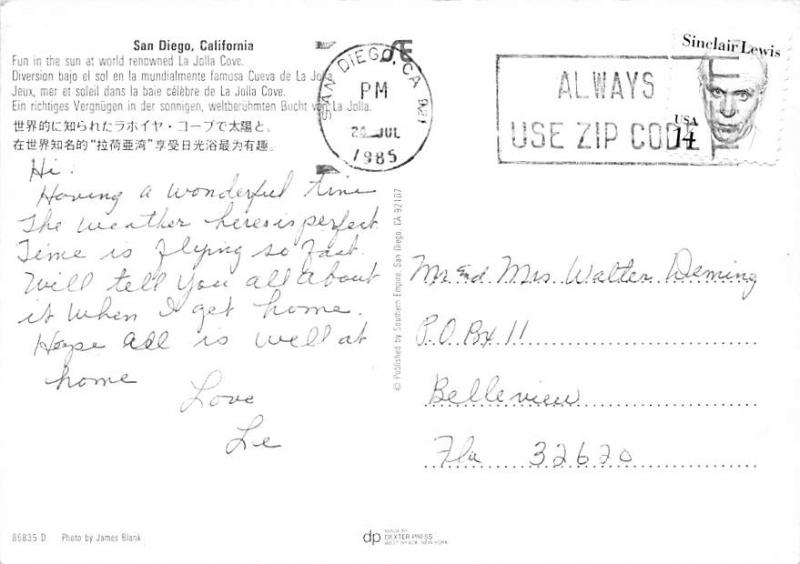 San Diego, California
Fun in the sun at world renowned La Jolla Cove.
Diversion bajo el sol en la mundialmente famosa Cueva de La Jolla.
Jeux, mer et soleil dans la baie célèbre de La Jolla Cove.
Ein richtiges Vergnügen in der sonnigen, weltberühmten Bucht von La Jolla.
世界的に知られたラホイヤ・コーブで太陽と。
在世界知名的“拉荷亜湾”享受日光浴最为有趣。
SAN DIEGO, CA 921
PM
JUL
1985
ALWAYS
USE ZIP CODE
Sinclair Lewis
USA
14
Hi.
Having a wonderful time
The weather here is perfect
Time is flying so fast.
Will tell you all about
it when I get home.
Hope all is well at
home
Love
Le
© Published by Southern Empire, San Diego, CA 92107
Mr and Mrs Walter Deming
P.O Box 11
Belleview
Fla 32620
85835-D Photo by James Blank
dp
MADE BY
DEXTER PRESS
WEST NYACK, NEW YORK